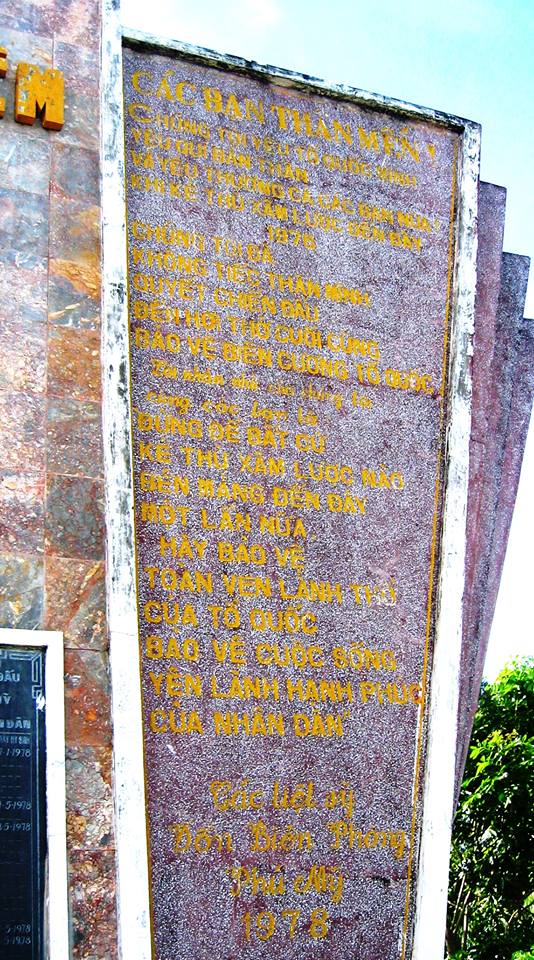 ÊM
CÁC BẠN THÂN MẾN !
CHÚNG TÔI YÊU TỔ QUỐC MÌNH
YÊU QUÍ BẢN THÂN
VÀ YÊU THƯƠNG CẢ CÁC BẠN NỮA !
KHI KẺ THÙ XÂM LƯỢC ĐẾN ĐÂY
1978
CHÚNG TÔI ĐÃ
KHÔNG TIẾC THÂN MÌNH
QUYẾT CHIẾN ĐẤU
ĐẾN HƠI THỞ CUỐI CÙNG
BẢO VỆ BIÊN CƯƠNG TỔ QUỐC
Lời nhắn nhủ của chúng tôi
cùng các bạn là
ĐỪNG ĐỂ BẤT CỨ
KẺ THÙ XÂM LƯỢC NÀO
ĐẾN MẢNG ĐẤT ĐÂY
MỘT LẦN NỮA
HÃY BẢO VỆ
TOÀN VẸN LÃNH THỔ
CỦA TỔ QUỐC
BẢO VỆ CUỘC SỐNG
YÊN LÀNH HẠNH PHÚC
CỦA NHÂN DÂN
Các liệt sỹ
Đồn Biên Phòng
Phú Mỹ
1978
ĐẤU
MỸ
DÂN
-1-1978
-5-1978
-5-1978
-5-1978
5-1978